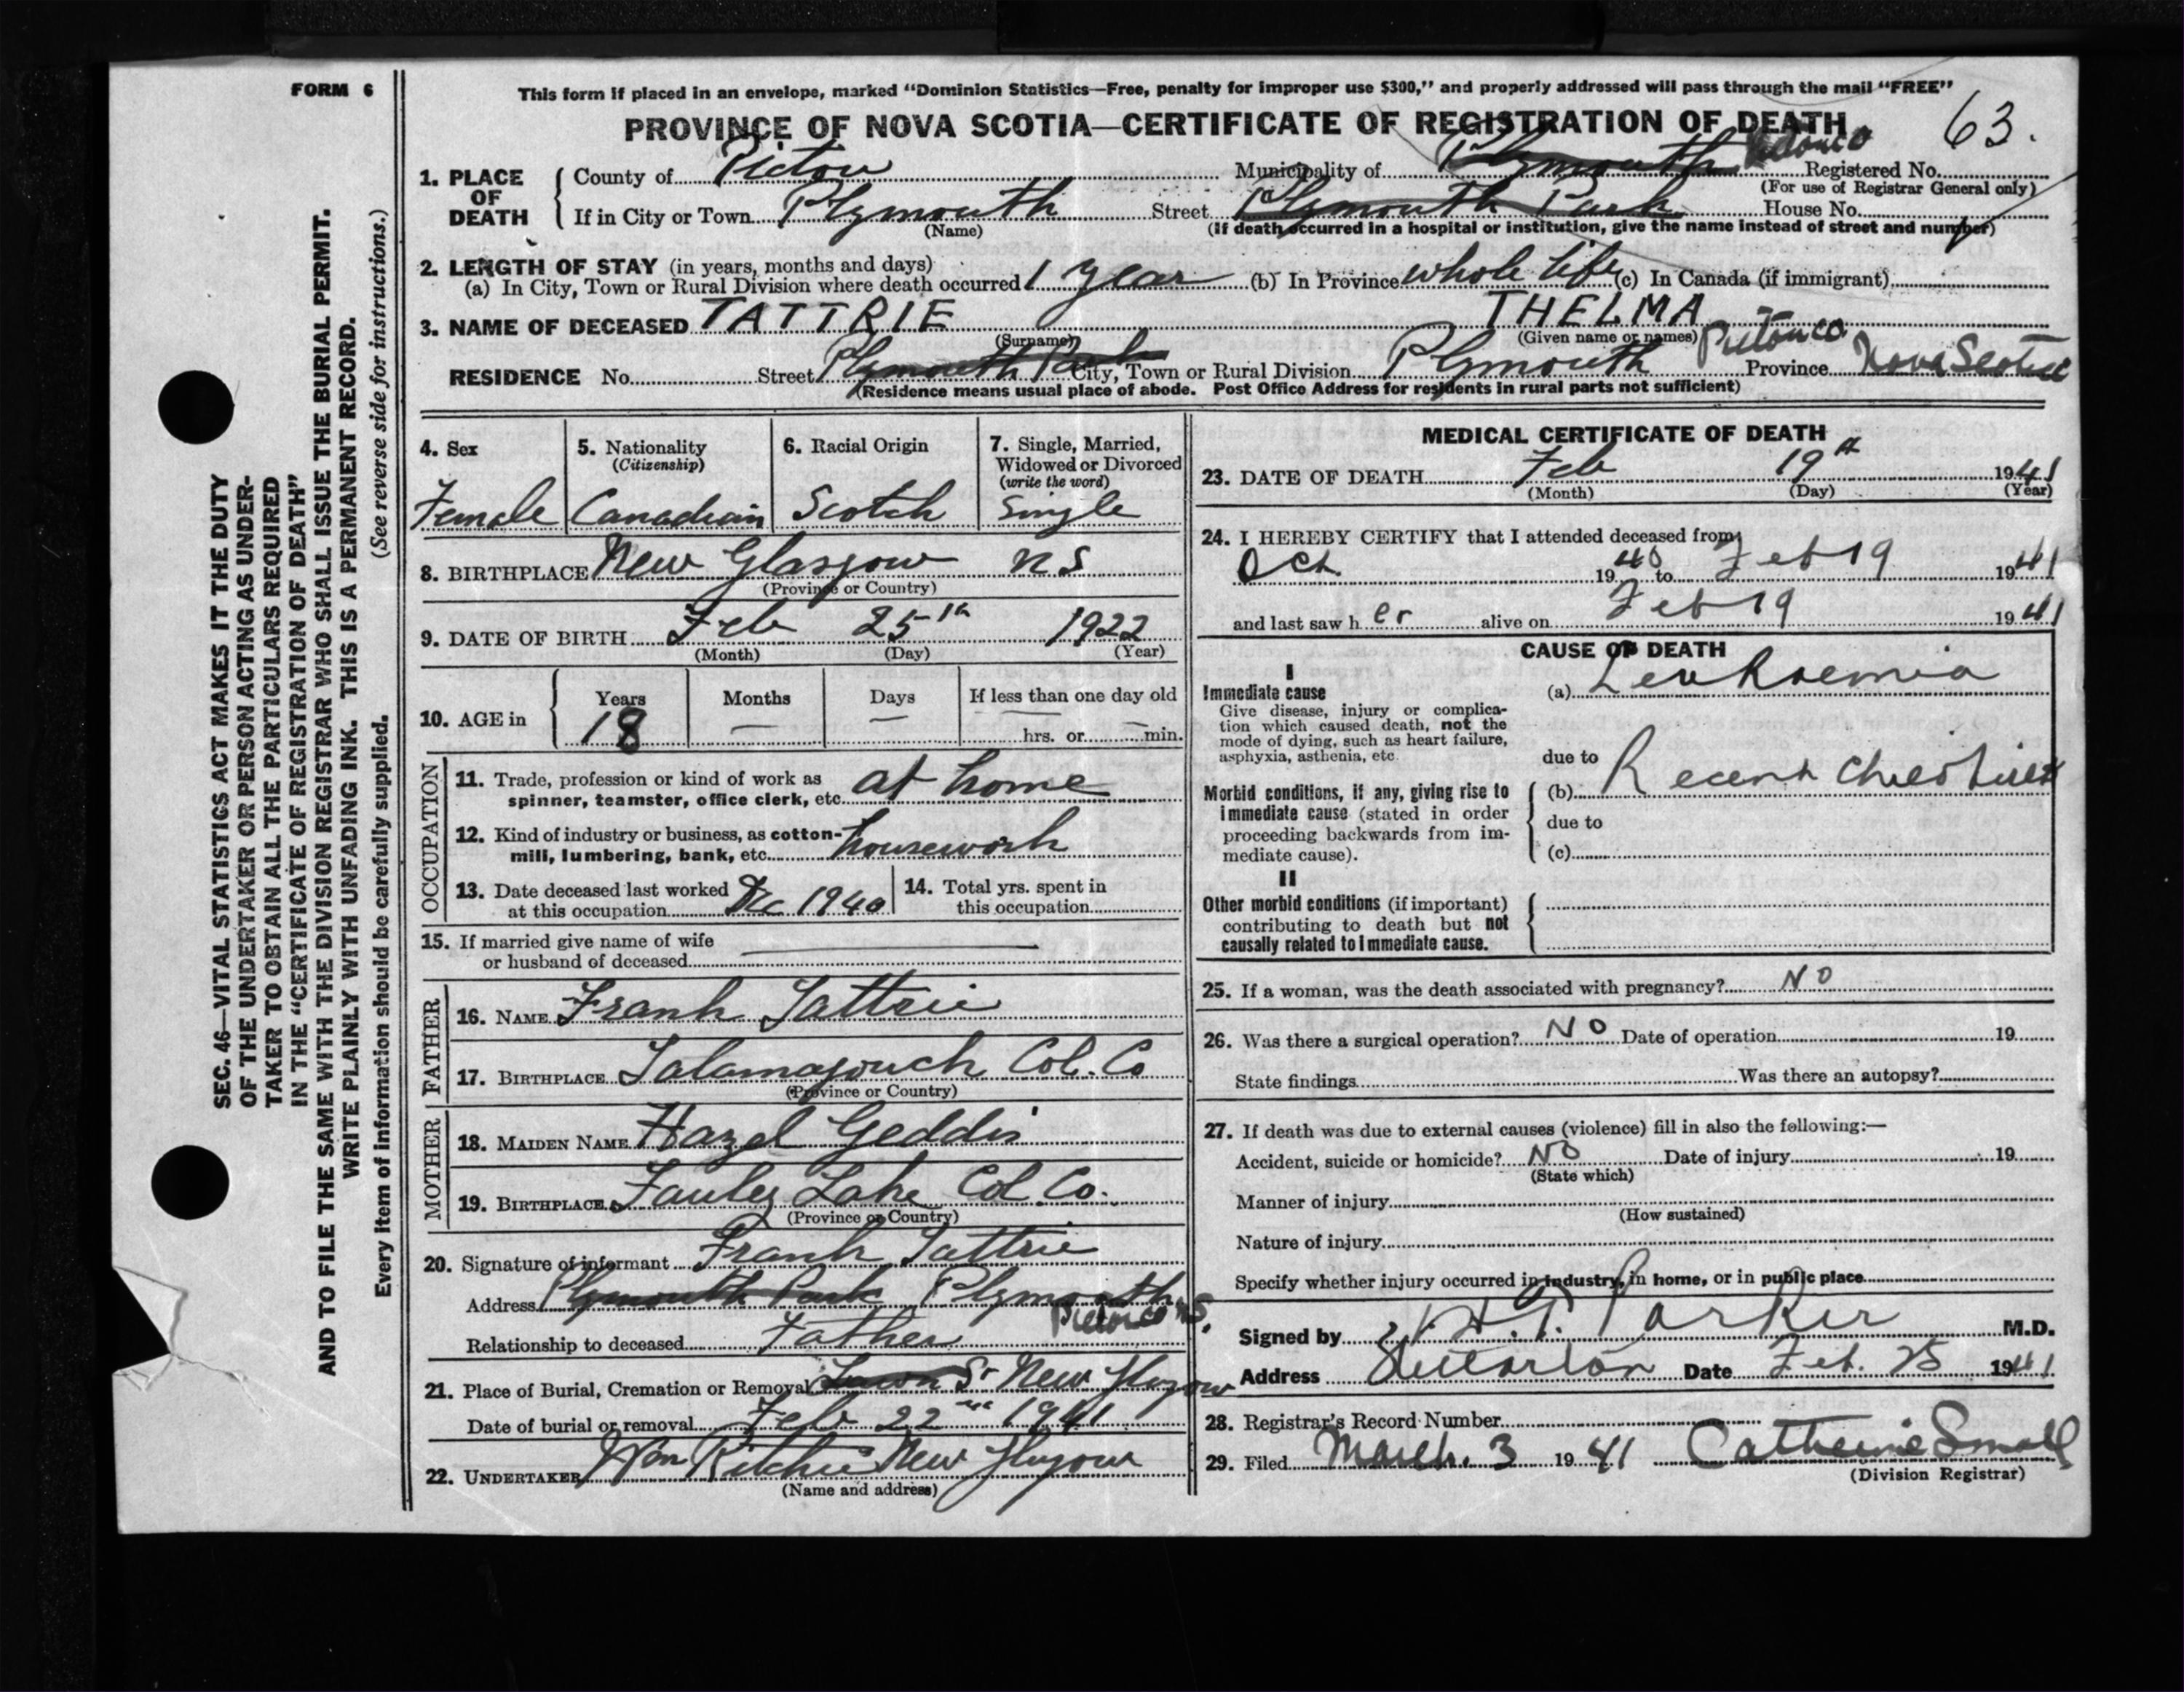 FORM 6
This form if placed in an envelope, marked "Dominion Statistics—Free, penalty for improper use $300," and properly addressed will pass through the mail "FREE"
PROVINCE OF NOVA SCOTIA—CERTIFICATE OF REGISTRATION OF DEATH
63.
1. PLACE OF DEATH
County of Pictou Municipality of Plymouth Pictou Co Registered No.
(For use of Registrar General only)
If in City or Town Plymouth Street Plymouth Park House No.
(Name) (If death occurred in a hospital or institution, give the name instead of street and number)
2. LENGTH OF STAY (in years, months and days)
(a) In City, Town or Rural Division where death occurred 1 year (b) In Province whole life (c) In Canada (if immigrant)
3. NAME OF DECEASED TATTRIE THELMA
(Surname) (Given name or names)
RESIDENCE No. Street Plymouth Park City, Town or Rural Division Plymouth Pictou Co. Province Nova Scotia
(Residence means usual place of abode. Post Office Address for residents in rural parts not sufficient)
4. Sex
Female
5. Nationality
(Citizenship)
Canadian
6. Racial Origin
Scotch
7. Single, Married,
Widowed or Divorced
(write the word)
Single
8. BIRTHPLACE New Glasgow N S
(Province or Country)
9. DATE OF BIRTH Feb 25th 1922
(Month) (Day) (Year)
10. AGE in
Years Months Days If less than one day old
18 — — — hrs. or — min.
OCCUPATION
11. Trade, profession or kind of work as
spinner, teamster, office clerk, etc. at home
12. Kind of industry or business, as cotton-
mill, lumbering, bank, etc. housework
13. Date deceased last worked
at this occupation Dec 1940
14. Total yrs. spent in
this occupation
15. If married give name of wife
or husband of deceased
FATHER
16. NAME Frank Tattrie
17. BIRTHPLACE Tatamagouch Col. Co
(Province or Country)
MOTHER
18. MAIDEN NAME Hazel Geddis
19. BIRTHPLACE Lake Col. Co.
(Province or Country)
20. Signature of informant Frank Tattrie
Address Plymouth Park Plymouth Pictou Co N.S.
Relationship to deceased Father
21. Place of Burial, Cremation or Removal St New Glasgow
Date of burial or removal Feb 22nd 1941
22. UNDERTAKER Wm Ritchie New Glasgow
(Name and address)
MEDICAL CERTIFICATE OF DEATH
23. DATE OF DEATH Feb 19th 1941
(Month) (Day) (Year)
24. I HEREBY CERTIFY that I attended deceased from
Oct 1940 to Feb 19 1941
and last saw her alive on Feb 19 1941
CAUSE OF DEATH
I
Immediate cause
Give disease, injury or complica-
tion which caused death, not the
mode of dying, such as heart failure,
asphyxia, asthenia, etc
(a) Leukaemia
due to
Morbid conditions, if any, giving rise to
immediate cause (stated in order
proceeding backwards from im-
mediate cause).
(b) Recent childbirth
due to
(c)
II
Other morbid conditions (if important)
contributing to death but not
causally related to immediate cause.
25. If a woman, was the death associated with pregnancy? NO
26. Was there a surgical operation? NO Date of operation 19
State findings Was there an autopsy?
27. If death was due to external causes (violence) fill in also the following:—
Accident, suicide or homicide? NO Date of injury 19
(State which)
Manner of injury
(How sustained)
Nature of injury
Specify whether injury occurred in industry, in home, or in public place
Signed by H. T. Parker M.D.
Address Stellarton Date Feb. 25 1941
28. Registrar's Record Number
29. Filed March. 3 1941 Catherine Small
(Division Registrar)
SEC. 46—VITAL STATISTICS ACT MAKES IT THE DUTY
OF THE UNDERTAKER OR PERSON ACTING AS UNDER-
TAKER TO OBTAIN ALL THE PARTICULARS REQUIRED
IN THE "CERTIFICATE OF REGISTRATION OF DEATH"
AND TO FILE THE SAME WITH THE DIVISION REGISTRAR WHO SHALL ISSUE THE BURIAL PERMIT.
WRITE PLAINLY WITH UNFADING INK. THIS IS A PERMANENT RECORD.
Every item of information should be carefully supplied. (See reverse side for instructions.)